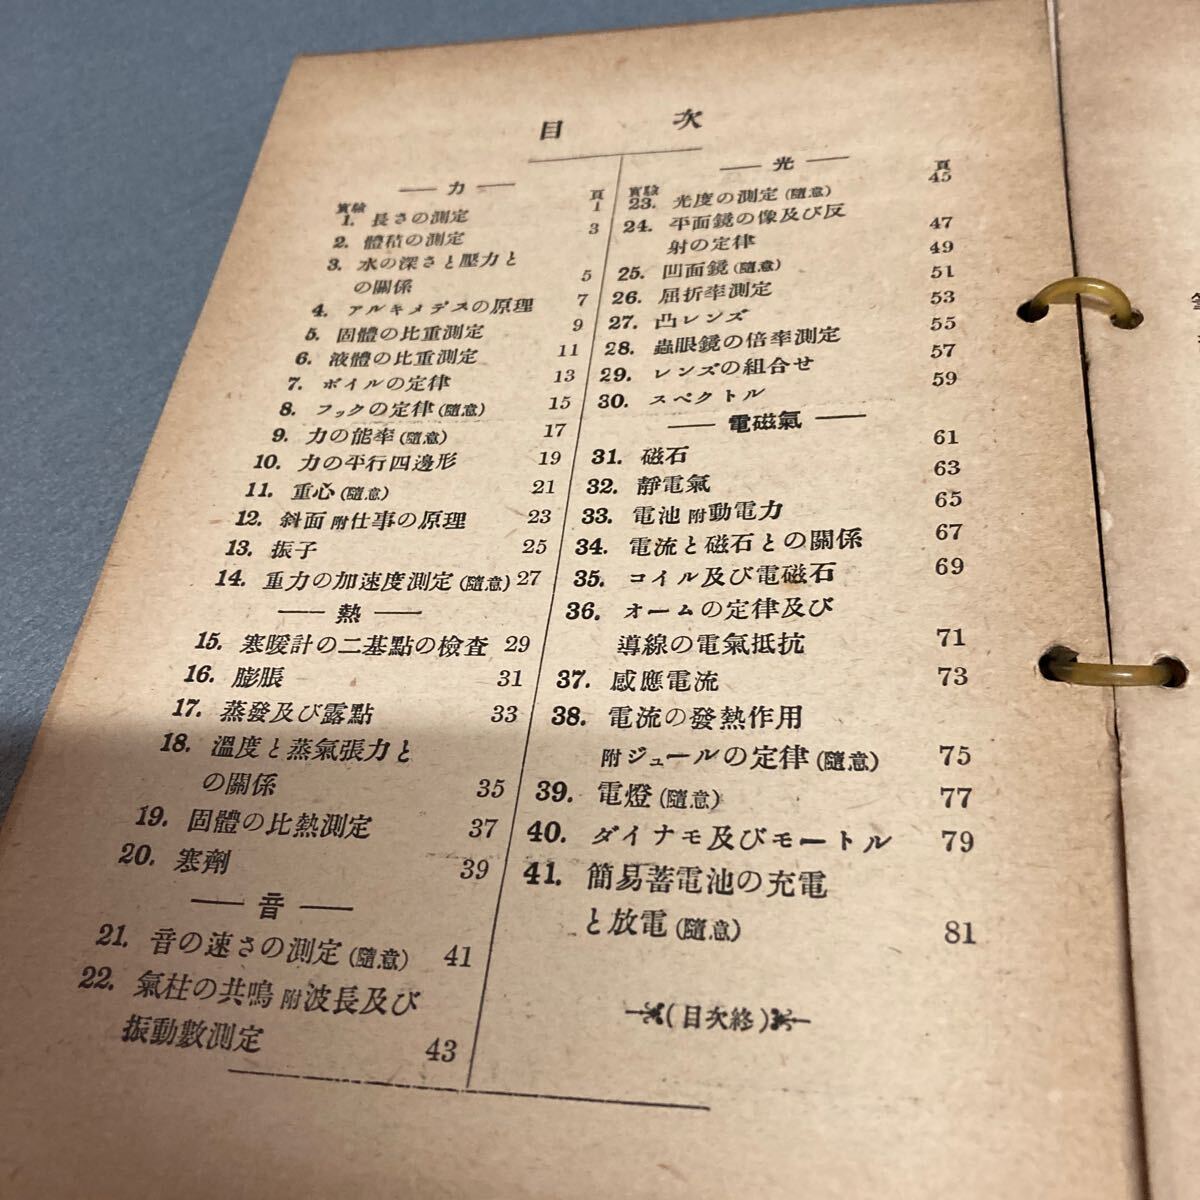 目次
— 力 —
實驗 頁
1. 長さの測定 1
2. 體積の測定 3
3. 水の深さと壓力と
の關係 5
4. アルキメデスの原理 7
5. 固體の比重測定 9
6. 液體の比重測定 11
7. ボイルの定律 13
8. フックの定律(隨意) 15
9. 力の能率(隨意) 17
10. 力の平行四邊形 19
11. 重心(隨意) 21
12. 斜面 附仕事の原理 23
13. 振子 25
14. 重力の加速度測定(隨意) 27
— 熱 —
15. 寒暖計の二基點の檢査 29
16. 膨脹 31
17. 蒸發及び露點 33
18. 溫度と蒸氣張力と
の關係 35
19. 固體の比熱測定 37
20. 寒劑 39
— 音 —
21. 音の速さの測定(隨意) 41
22. 氣柱の共鳴 附波長及び
振動數測定 43
— 光 —
實驗 頁
23. 光度の測定(隨意) 45
24. 平面鏡の像及び反
射の定律 47
25. 凹面鏡(隨意) 49
26. 屈折率測定 51
27. 凸レンズ 53
28. 蟲眼鏡の倍率測定 55
29. レンズの組合せ 57
30. スペクトル 59
— 電磁氣 —
31. 磁石 61
32. 靜電氣 63
33. 電池 附動電力 65
34. 電流と磁石との關係 67
35. コイル及び電磁石 69
36. オームの定律及び
導線の電氣抵抗 71
37. 感應電流 73
38. 電流の發熱作用
附ジュールの定律(隨意) 75
39. 電燈(隨意) 77
40. ダイナモ及びモートル 79
41. 簡易蓄電池の充電
と放電(隨意) 81
(目次終)